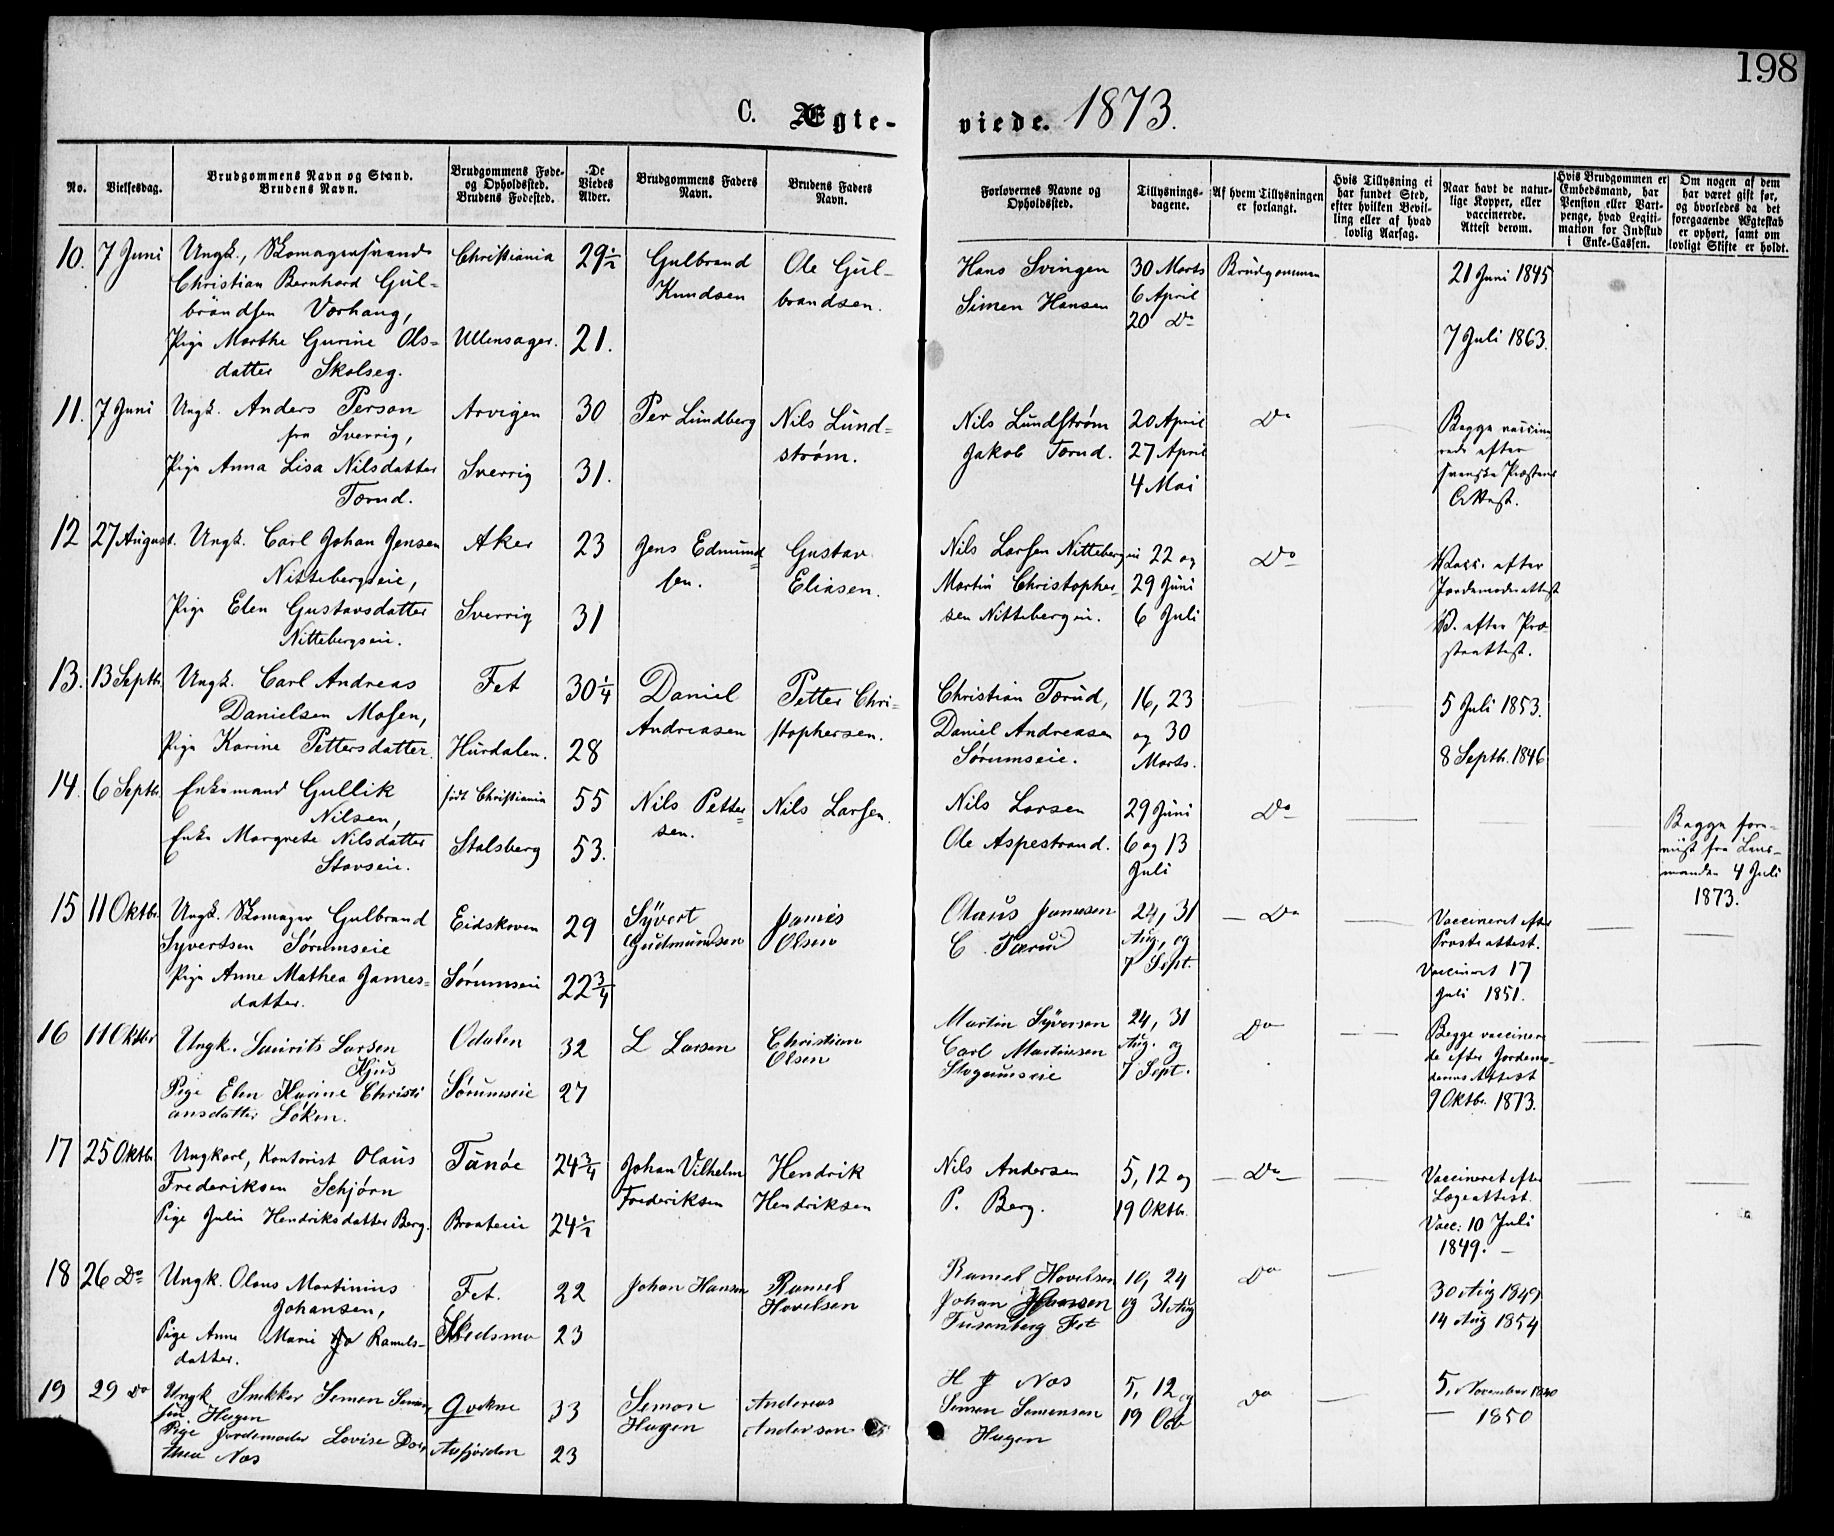 198
C. Ægte- viede. 1873.
No.
Vielsesdag.
Brudgommens Navn og Stand.
Brudens Navn.
Brudgommens Føde-
og Opholdssted.
Brudens Fødested.
De
Viedes
Alder.
Brudgommens Faders
Navn.
Brudens Faders
Navn.
Forlovernes Navne og
Opholdssted.
Tillysnings-
dagene.
Af hvem Tillysningen
er forlangt.
Hvis Tillysning ei
har fundet Sted,
efter hvilken Bevil-
ling eller af hvad
lovlig Aarsag.
Naar havt de natur-
lige Kopper, eller
vaccinerede.
Attest derom.
Hvis Brudgommen er
Embedsmand, har
Pension eller Vart-
penge, hvad Legiti-
mation for Indskud
i Enke-Cassen.
Om nogen af dem
har været gift før,
og hvorledes da det
foregaaende Ægteskab
er ophørt, samt om
lovligt Skifte er holdt.
10. 7 Juni
Ungk., Skomagersvend
Christian Bernhard Gul-
brandsen Vorhaug,
Pige Marthe Gurine Ols-
datter Skolseg.
Christiania
Ullensager.
29½
21.
Gulbrand
Knudsen
Ole Gul-
brandsen.
Hans Svingen
Simen Hansen
30 Marts
6 April
20 Do
Brudgommen
21 Juni 1845
7 Juli 1863.
11. 7 Juni
Ungk. Anders Person
fra Sverrig,
Pige Anna Lisa Nilsdatter
Torud.
Arvigen
Sverrig
30
31.
Per Lundberg
Nils Lund-
strøm.
Nils Lundstrøm
Jakob Torud.
20 April
27 April
4 Mai
Do
Begge vaccine
rede efter
svenske Præstens
Attest.
12 27 August.
Ungk. Carl Johan Jensen
Nittebergseie,
Pige Elen Gustavsdatter
Nittebergseie.
Aker
Sverrig
23
31
Jens Edmund-
sen.
Gustav
Eliasen.
Nils Larsen Nittebergeie
Martin Christopher-
sen Nittebergeie.
22 og
29 Juni
6 Juli
Do
Vacc. efter
Jordemoderattest
V. efter Præ-
steattest.
13. 13 Septb.
Ungk. Carl Andreas
Danielsen Mosen,
Pige Karine Pettersdatter
Fet
Hurdalen.
30¼
28
Daniel
Andreasen
Petter Chri-
stophersen.
Christian Torud,
Daniel Andreasen
Sørumseie.
16, 23
og 30
Marts.
5 Juli 1853.
8 Septb. 1846
14. 6 Septb.
Enkemand Gullik
Nilsen,
Enke Margrete Nilsdatter
Stovseie.
født Christiania
Stalsberg
55
53.
Nils Petter-
sen.
Nils Larsen.
Nils Larsen
Ole Aspestrand.
29 Juni
6 og 13
Juli
Do
Begge
fra Lens-
manden 4 Juli
1873.
15 11 Oktbr.
Ungk. Skomager Gulbrand
Syvertsen Sørumseie
Pige Anne Mathea James-
datter.
Eidskoven
Sørumseie
29
22¾
Syvert
Gudmundsen
James
Olsen
Olaus Jamesen
C. Torud
24, 31
Aug. og
7 Sept.
Do
Vaccineret efter
Præsteattest.
Vaccineret 17
Juli 1851.
16 11 Oktbr
Ungk. Laurits Larsen
Kjus
Pige Elen Karine Christi
ansdatter Løken.
Odalen
Sørumseie
32
27
L Larsen
Christian
Olsen
Martin Syversen
Carl Martinsen
24, 31
Aug. og
7 Sept.
Do
Begge vaccinere
de efter Jordemo-
derens Attest
9 Oktbr. 1873.
17 25 Oktbr
Ungkarl, Kontorist Olaus
Frederiksen Schjørn
Pige Julie Hendriksdatter Berg.
Tanøe
Braateeie
24¾
24½
Johan Vilhelm
Frederiksen
Hendrik
Hendriksen
Nils Andersen
P. Berg.
5, 12 og
19 Oktbr.
Do
Vaccineret efter
Lægeattest.
Vacc: 10 Juli
1849.
18 26 Do
Ungk. Olaus Martinius
Johansen,
Pige Anne Marie Ramels-
datter.
Fet.
Skedsmo
22
23
Johan Hansen
Ramel
Hovelsen
Ramel Hovelsen
Johan Hansen
Tusenberg Fet
10, 24
og 31 Aug
Do
30 Aug 1849
14 Aug 1854
19 29 Do
Ungk Snekker Semen Semen
sen Haugen
Pige Jordemoder Lovise Doro
thea Næs
33
23
Semon
Haugen
Andreas
Andersen
H J Næs
Semen Semensen
Haugen
5, 12 og
19 Octb
Do
5, November 1840
— 1850